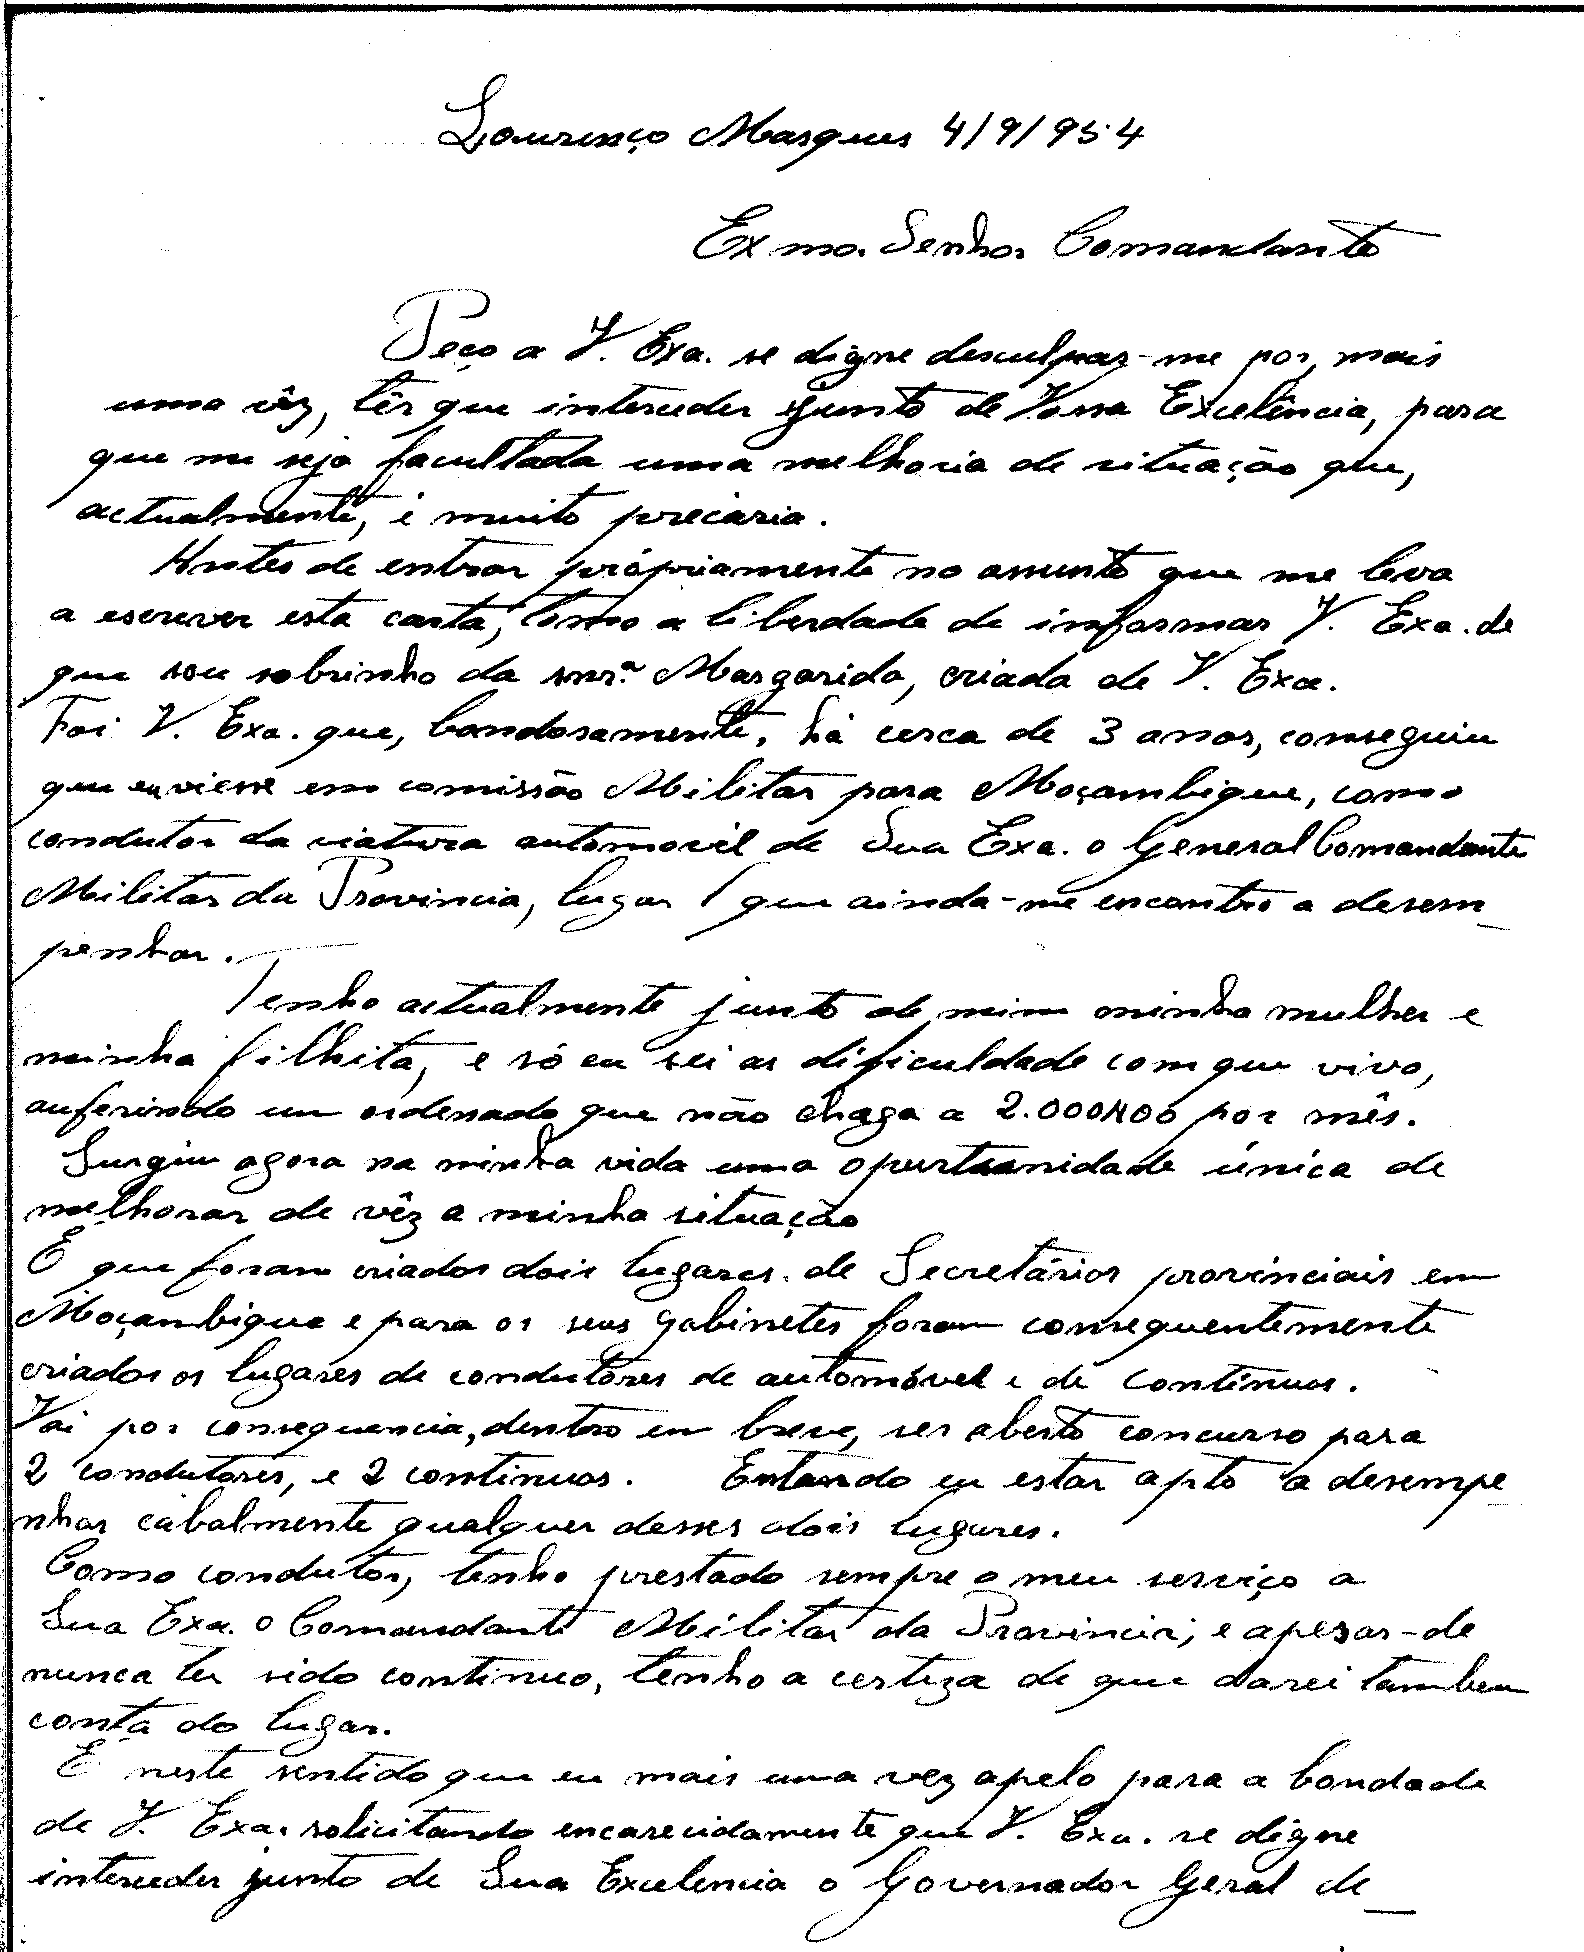 Lourenço Marques 4/9/954
Exmo. Senhor Comandante
Peço a V. Exa. se digne desculpar-me por, mais
uma vêz, têr que interceder junto de Vossa Excelência, para
que me seja facultada uma melhoria de situação que,
actualmente, é muito precária.
Antes de entrar própriamente no assunto que me leva
a escrever esta carta, tomo a liberdade de informar V. Exa. de
que sou sobrinho da snrª. Margarida, criada de V. Exa.
Foi V. Exa. que, bondosamente, há cerca de 3 anos, conseguiu
que eu viesse em comissão Militar para Moçambique, como
condutor da viatura automovel de Sua Exa. o General Comandante
Militar da Provincia, lugar que ainda-me encontro a desem_
penhar.
Tenho actualmente junto de mim minha mulher e
minha filhita, e só eu sei as dificuldade com que vivo,
auferindo um ordenado que não chega a 2.000$00 por mês.
Surgiu agora na minha vida uma oportunidade única de
melhorar de vêz a minha situação
É que foram criados dois lugares. de Secretários provinciais em
Moçambique e para os seus gabinetes foram consequentemente
criados os lugares de condutores de automóvel e de Contínuos.
Vai por consequencia, dentro em breve, ser aberto concurso para
2 condutores, e 2 contínuos. Entendo eu estar apto a desempe_
nhar cabalmente qualquer desses dois lugares.
Como condutor, tenho prestado sempre o meu serviço a
Sua Exa. o Comandante Militar da Provincia, e apesar-de
nunca ter sido contínuo, tenho a certeza de que darei tambem
conta do lugar.
É neste sentido que eu mais uma vez apelo para a bondade
de V. Exa. solicitando encarecidamente que V. Exa. se digne
interceder junto de Sua Excelencia o Governador Geral de_